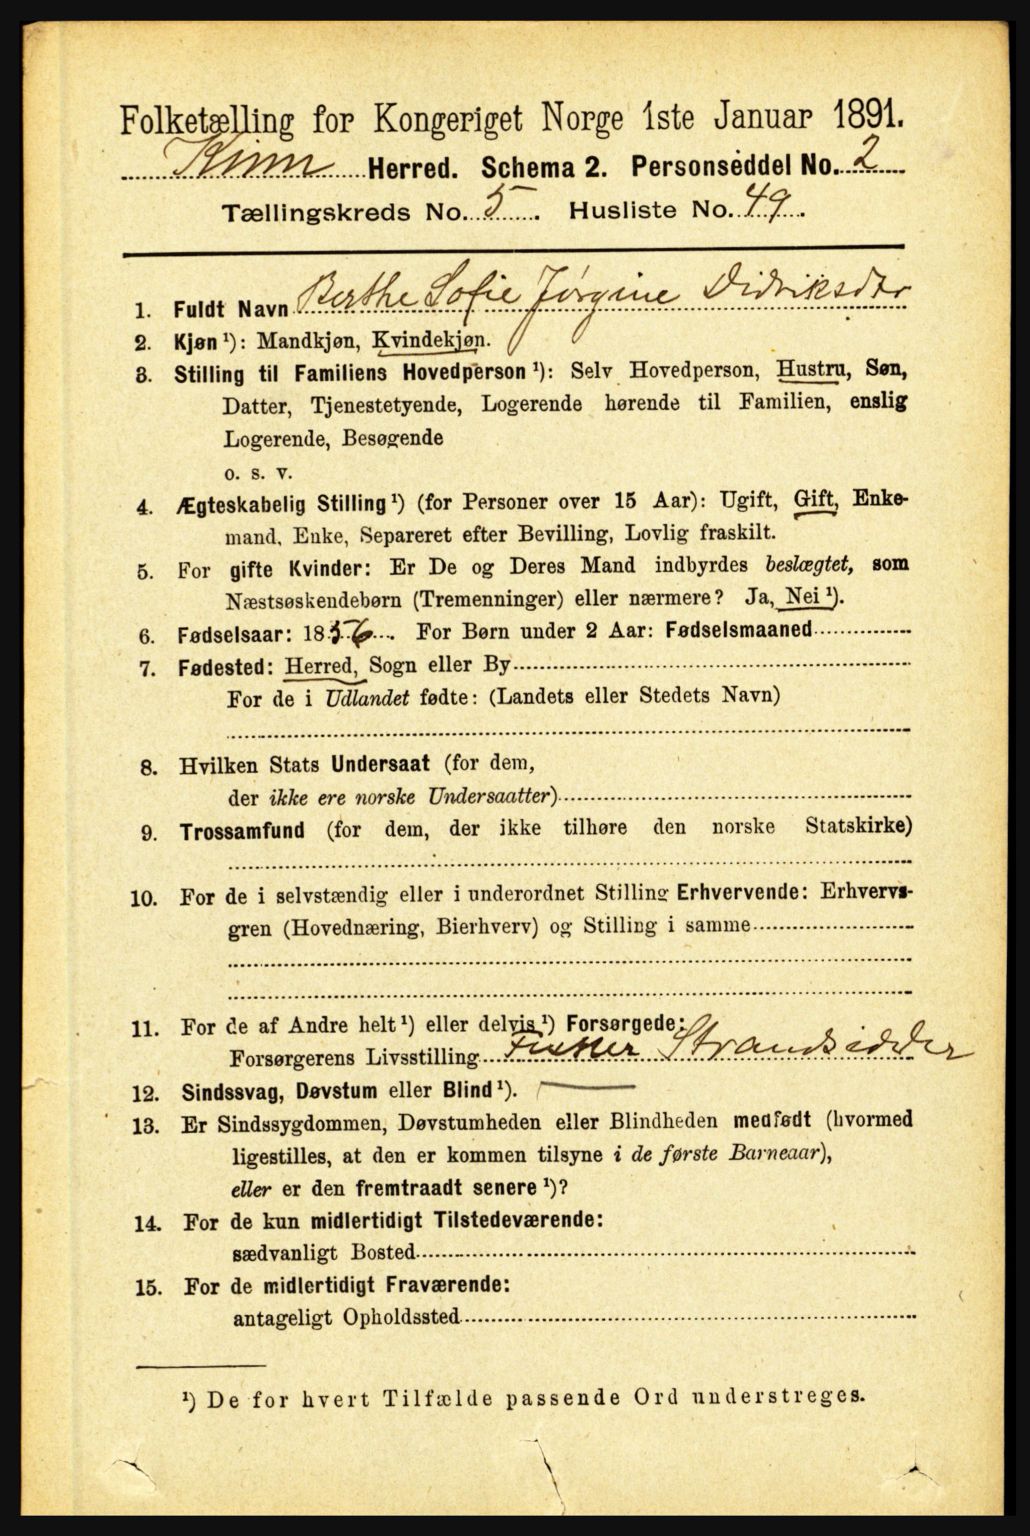 Folketælling for Kongeriget Norge 1ste Januar 1891.
Kinn Herred. Schema 2. Personseddel No. 2
Tællingskreds No. 5. Husliste No. 49.
1. Fuldt Navn Berthe Sofie Jørgine Didriksdtr
2. Kjøn ¹): Mandkjøn, Kvindekjøn.
3. Stilling til Familiens Hovedperson ¹): Selv Hovedperson, Hustru, Søn,
Datter, Tjenestetyende, Logerende hørende til Familien, enslig
Logerende, Besøgende
o. s. v.
4. Ægteskabelig Stilling ¹) (for Personer over 15 Aar): Ugift, Gift, Enke-
mand, Enke, Separeret efter Bevilling, Lovlig fraskilt.
5. For gifte Kvinder: Er De og Deres Mand indbyrdes beslægtet, som
Næstsøskendebørn (Tremenninger) eller nærmere? Ja, Nei ¹).
6. Fødselsaar: 1856. For Børn under 2 Aar: Fødselsmaaned
7. Fødested: Herred, Sogn eller By
For de i Udlandet fødte: (Landets eller Stedets Navn)
8. Hvilken Stats Undersaat (for dem,
der ikke ere norske Undersaatter)
9. Trossamfund (for dem, der ikke tilhøre den norske Statskirke)
10. For de i selvstændig eller i underordnet Stilling Erhvervende: Erhvervs-
gren (Hovednæring, Bierhverv) og Stilling i samme
11. For de af Andre helt ¹) eller delvis ¹) Forsørgede:
Forsørgerens Livsstilling Fisker Strandsidder
12. Sindssvag, Døvstum eller Blind ¹).
13. Er Sindssygdommen, Døvstumheden eller Blindheden medfødt (hvormed
ligestilles, at den er kommen tilsyne i de første Barneaar),
eller er den fremtraadt senere ¹)?
14. For de kun midlertidigt Tilstedeværende:
sædvanligt Bosted
15. For de midlertidigt Fraværende:
antageligt Opholdssted
¹) De for hvert Tilfælde passende Ord understreges.